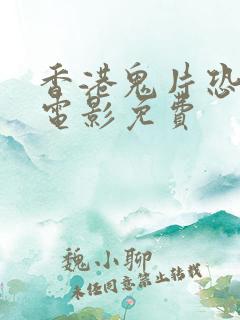 香港鬼片恐
電影免費
魏小聊
未经同意禁止转载